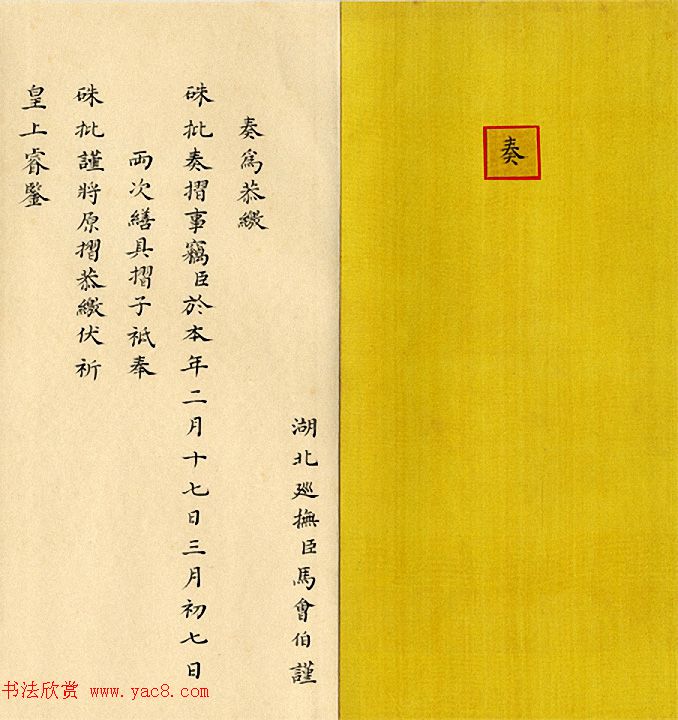 奏
湖北廵撫臣馬會伯謹
奏爲恭繳
硃批奏摺事竊臣於本年二月十七日三月初七日
兩次繕具摺子祗奉
硃批謹將原摺恭繳伏祈
皇上睿鑒
书法欣赏 www.yac8.com